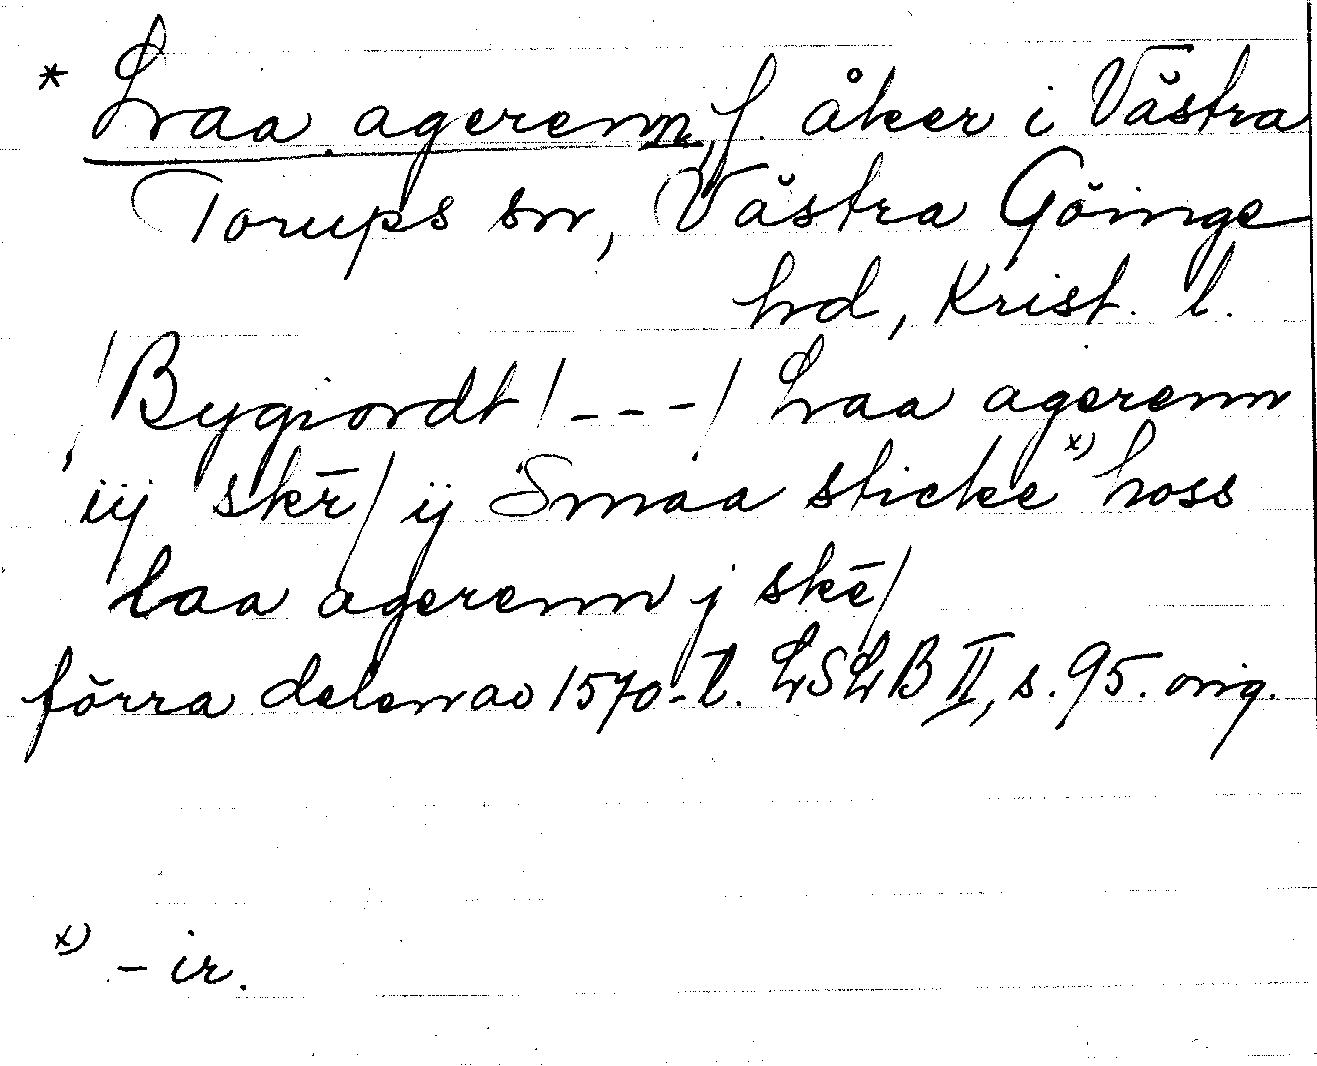 * Laa agerenn, f. åker i Västra
Torups sn, Västra Göinge
hd, Krist. l.
/Bygiordt/---/ Laa agerenn
iij skr̄/ ij Smaa sticke x) hoss
laa agerenn j skē/
förra delen av 1570-t. LSLB II, s. 95. orig.
x) - ir.